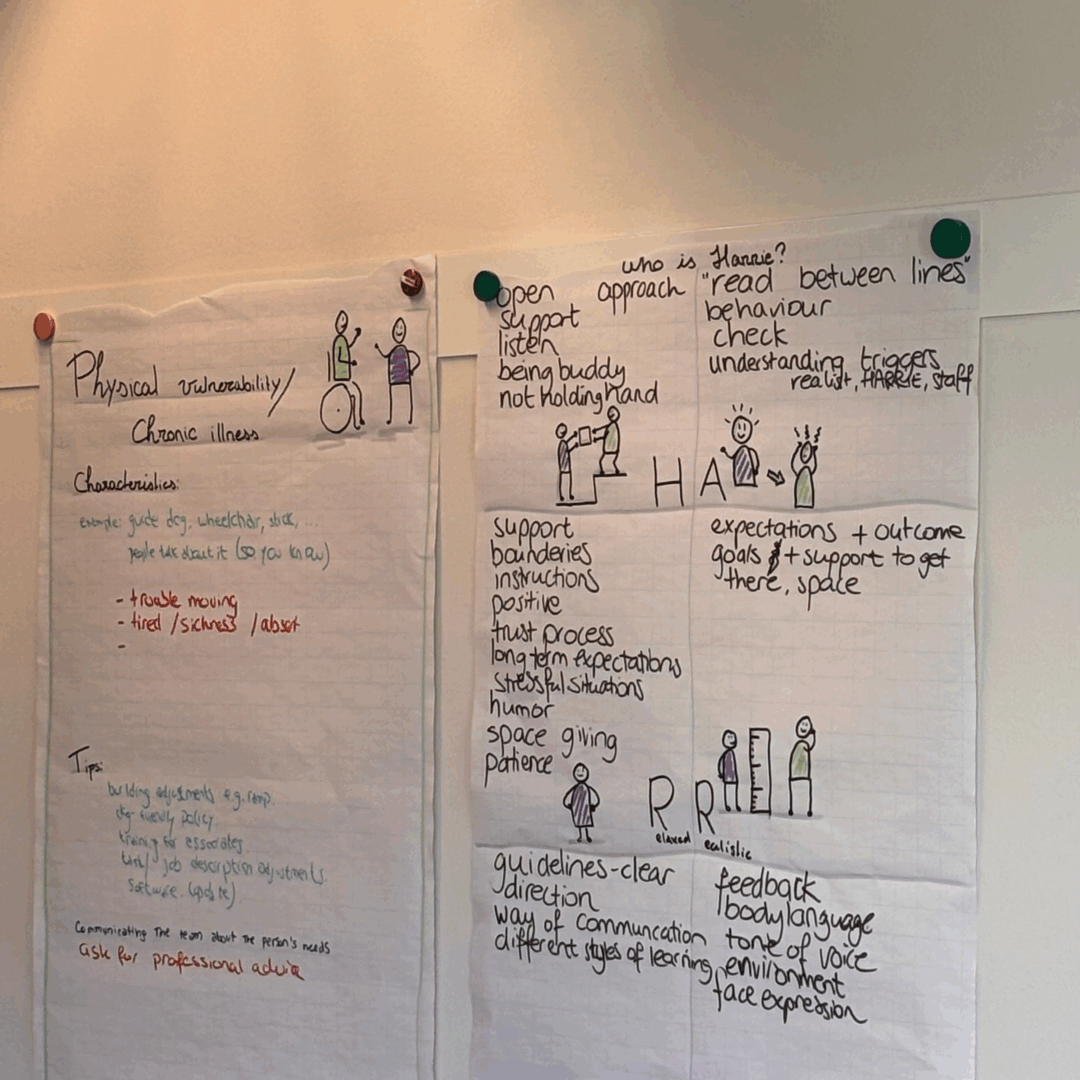 Physical vulnerability/
Chronic illness
Characteristics:
example: guide dog, wheelchair, stick, ...
people talk about it (so you know)
- trouble moving
- tired /sickness /absent
-
Tips:
building adjustments e.g. ramp.
dog friendly policy
training for associates
task/ job description adjustments
Software. (update)
Communicating the team about the person's needs
ask for professional advice
who is Harrie?
open approach
support
listen
being buddy
not holding hand
H
"read between lines"
behaviour
check
understanding triggers
realist, HARRIE, staff
A
support
bounderies
instructions
positive
trust process
long term expectations
stressful situations
humor
space giving
patience
R
elaxed
expectations + outcome
goals + support to get
there, space
R
ealistic
guidelines-clear
direction
way of communcation
different styles of learning
feedback
bodylanguage
tone of voice
environment
face expression